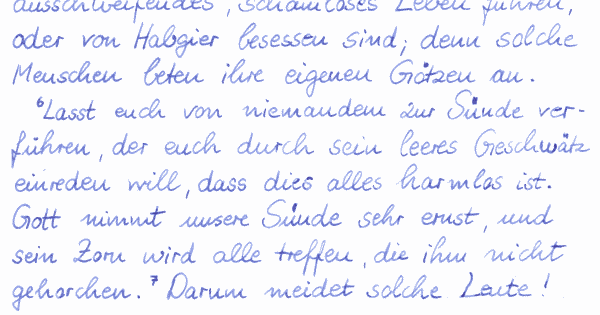 ausschweifendes, schamloses Leben führen,
oder von Habgier besessen sind; denn solche
Menschen beten ihre eigenen Götzen an.
⁶Lasst euch von niemandem zur Sünde ver-
führen, der euch durch sein leeres Geschwätz
einreden will, dass dies alles harmlos ist.
Gott nimmt unsere Sünde sehr ernst, und
sein Zorn wird alle treffen, die ihm nicht
gehorchen. ⁷Darum meidet solche Leute!